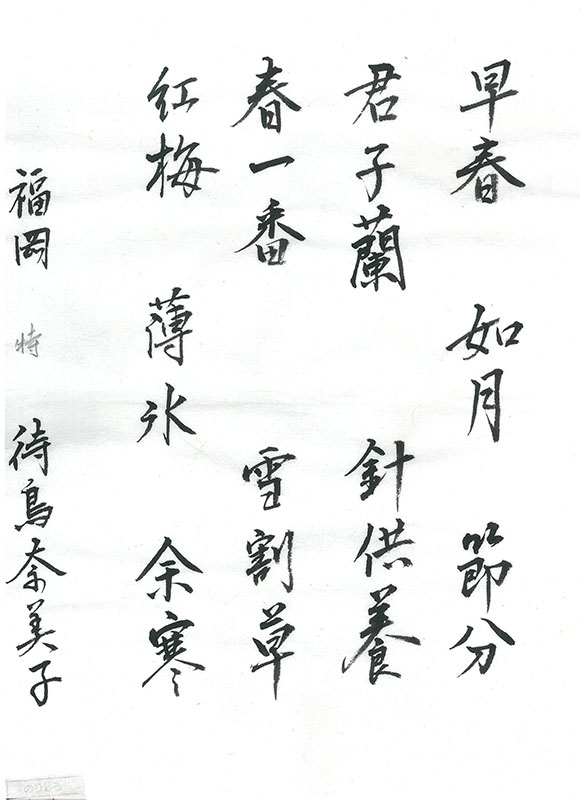 早春 如月 節分
君子蘭 針供養
春一番 雪割草
紅梅 薄氷 余寒
福岡 特 待鳥奈美子